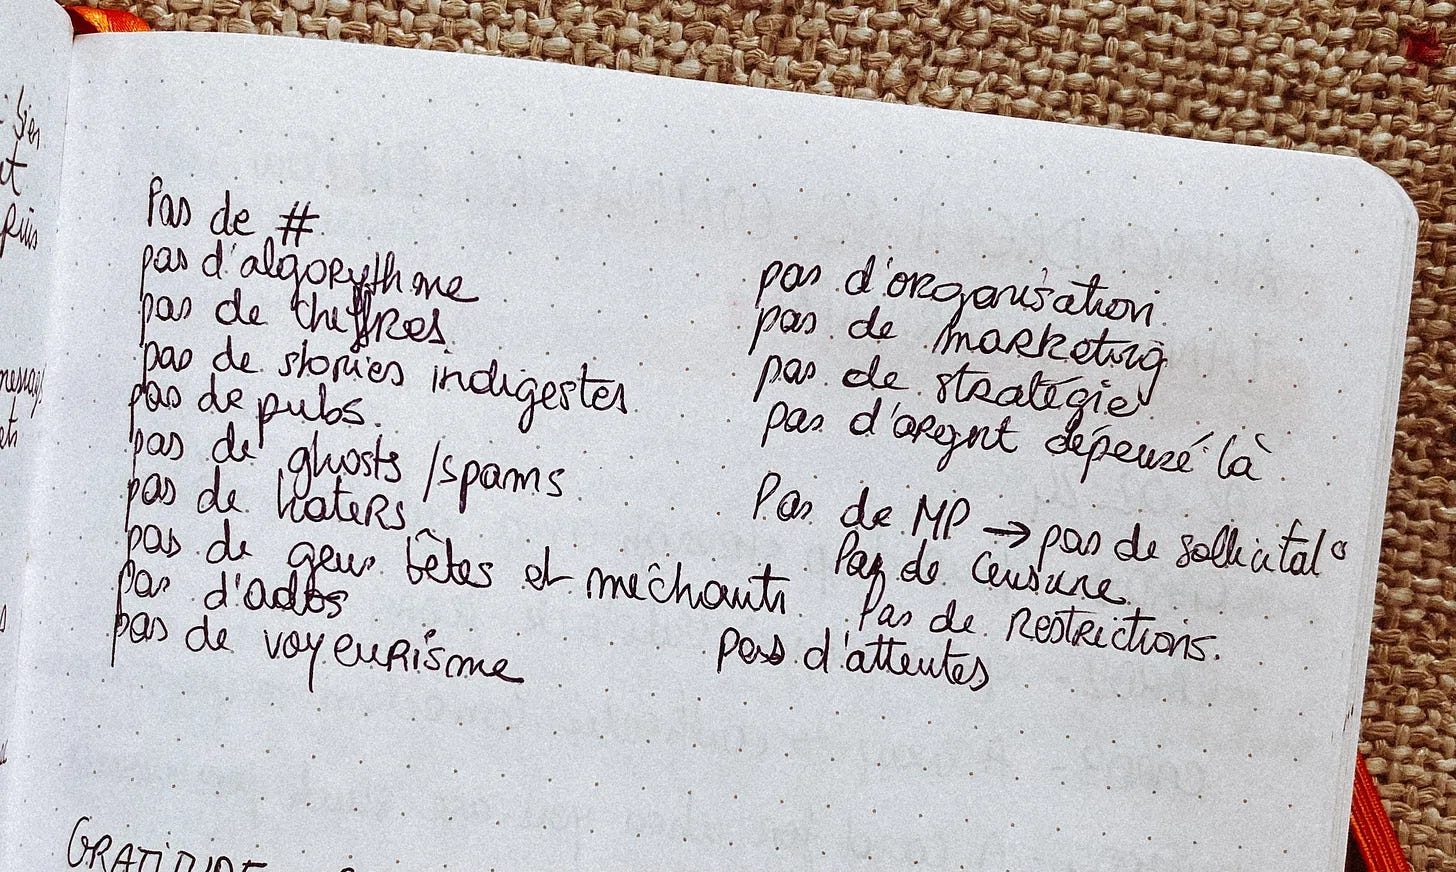 Pas de #
pas d'algorythme
pas de chiffres
pas de stories indigestes
pas de pubs.
pas de ghosts / spams
pas de haters
pas de gens bêtes et méchants
pas d'ados
pas de voyeurisme
pas d'organisation
pas de marketing
pas de stratégie
pas d'argent dépensé là
Pas de MP → pas de sollicitat°
Pas de censure
Pas de restrictions.
pas d'attentes
GRATITUDE